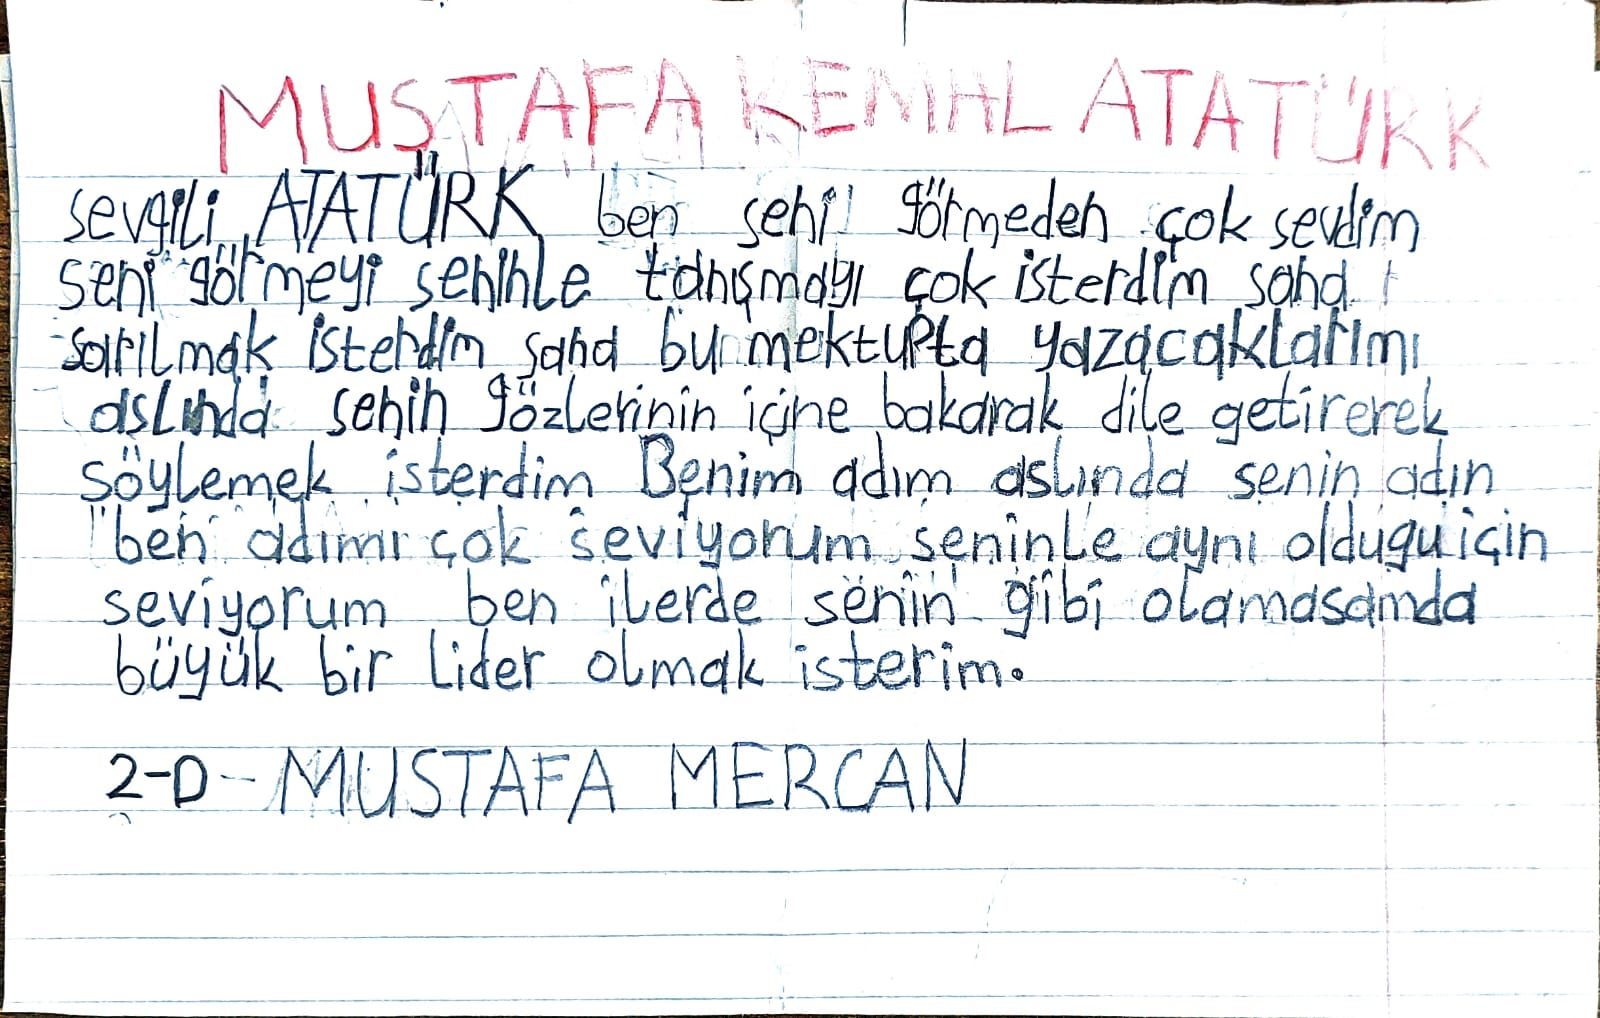 MUSTAFA KEMAL ATATÜRK
sevgili ATATÜRK ben seni görmeden çok sevdim
seni görmeyi seninle tanışmayı çok isterdim sana
sarılmak isterdim sana bu mektupta yazacaklarımı
aslında senin gözlerinin içine bakarak dile getirerek
söylemek isterdim Benim adım aslında senin adın
ben adımı çok seviyorum seninle aynı olduğu için
seviyorum ben ilerde senin gibi olamasamda
büyük bir lider olmak isterim.
2-D-MUSTAFA MERCAN